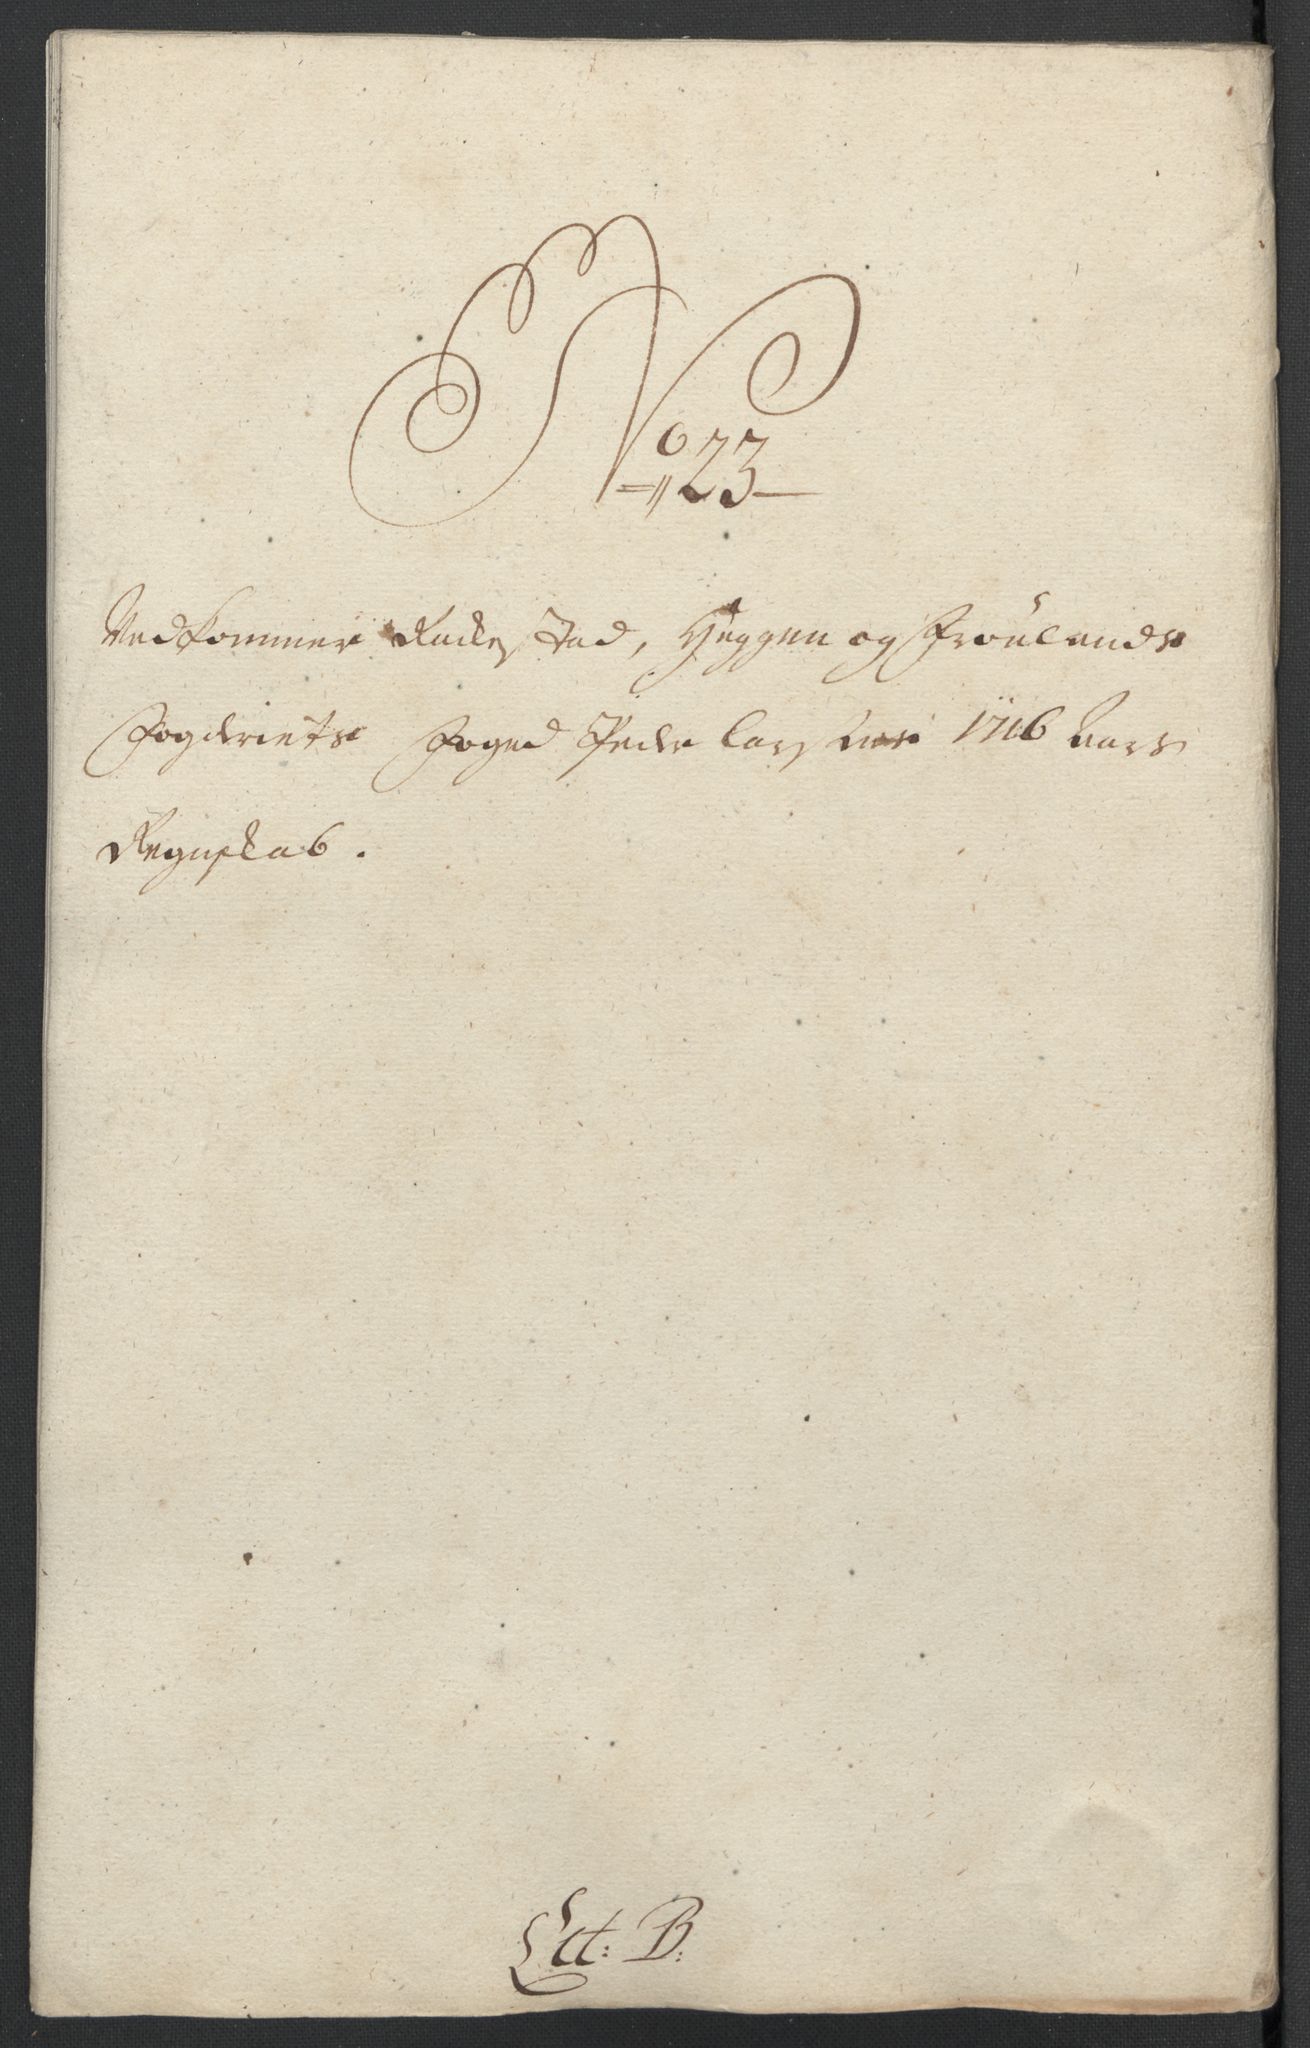 No 23
Vedkommer Rackestad, Heggen og Frøulands
Fogderiets Foged Peder Larsens 1716 Aars
Regnskab.
Litt: B: